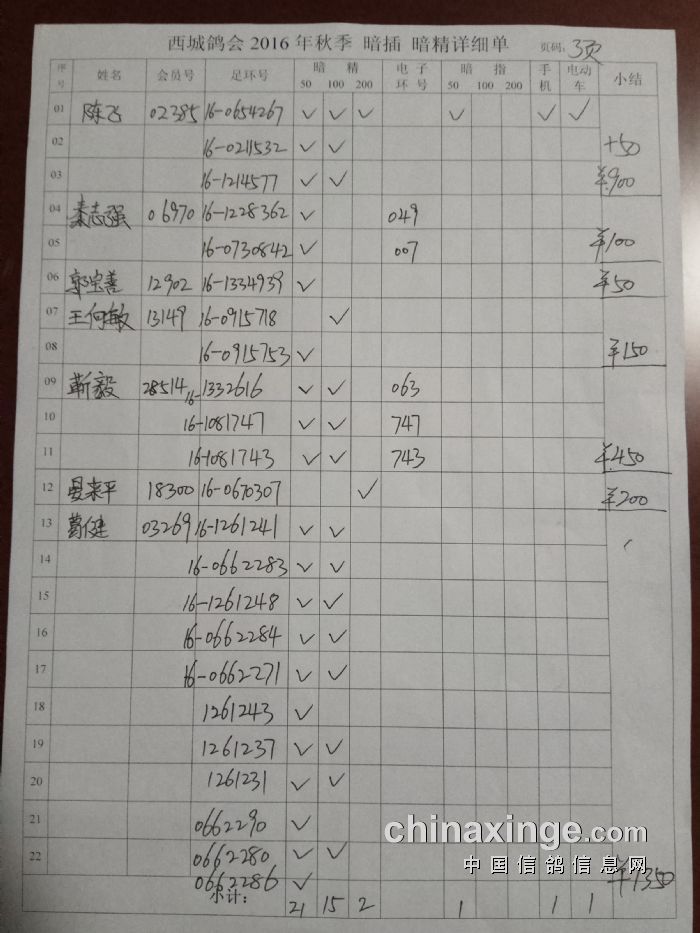 西城鸽会 2016 年秋季 暗插 暗精详细单 页码: 3页
序号 姓名 会员号 足环号 暗 精 50 100 200 电子环号 暗 指 50 100 200 手机 电动车 小结
01 陈飞 02385 16-0654267 ✓ ✓ ✓ ✓ ✓ ✓
02 16-0211532 ✓ ✓ +50
03 16-1214577 ✓ ✓ ¥900
04 秦志强 06970 16-1228362 ✓ 049
05 16-0730842 ✓ 007 ¥100
06 郭宝善 12902 16-1334939 ✓ ¥50
07 王何敏 13149 16-0915718 ✓
08 16-0915753 ✓ ¥150
09 靳毅 28514 16-1332616 ✓ ✓ 063
10 16-1081747 ✓ ✓ 747
11 16-1081743 ✓ ✓ 743 ¥450
12 晏来平 18300 16-0670307 ✓ ¥200
13 葛健 03269 16-1261241 ✓ ✓
14 16-0662283 ✓ ✓
15 16-1261248 ✓ ✓
16 16-0662284 ✓ ✓
17 16-0662271 ✓ ✓
18 1261243 ✓
19 1261237 ✓ ✓
20 1261231 ✓ ✓
21 0662290 ✓
22 0662280 ✓ ✓
0662286 ✓ ¥1350
小计: 21 15 2 1 1 1
chinaxinge.com
中国信鸽信息网